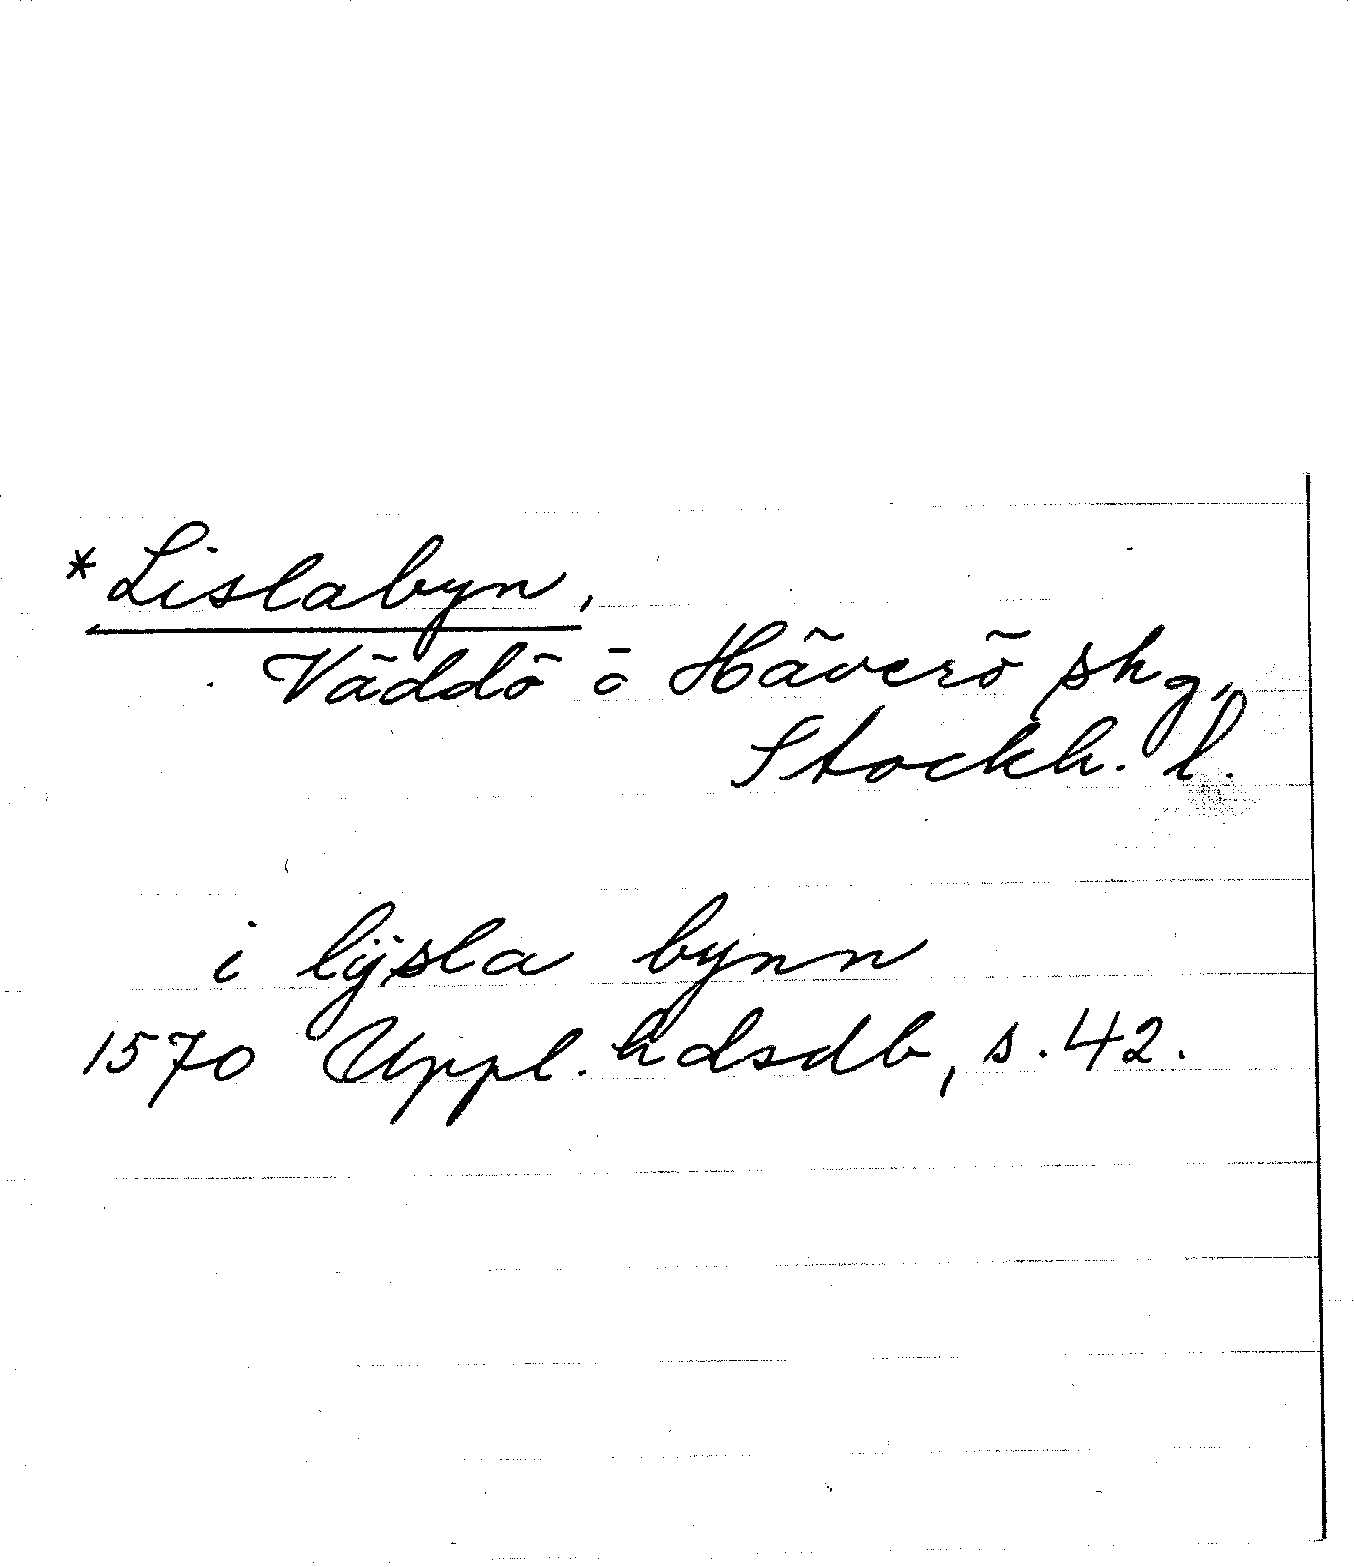 *Lislabyn,
Väddö o Häverö skg,
Stockh. l.
i lÿsla bynn
1570 Uppl. hdsdb, s. 42.